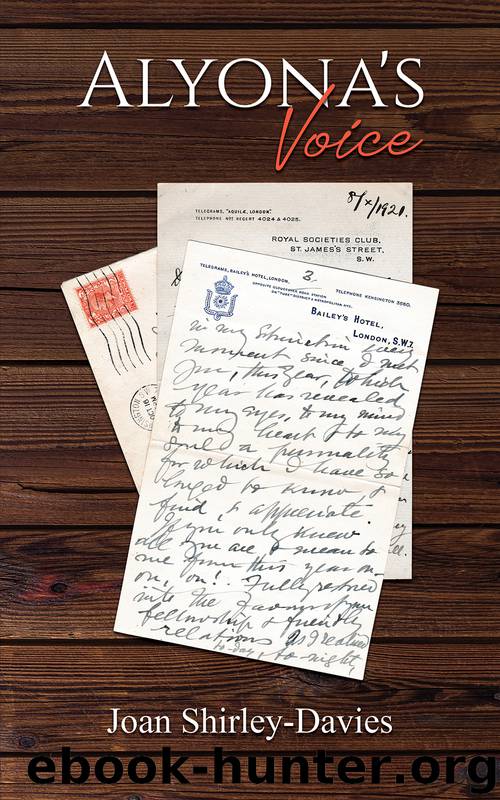 ALYONA'S
Voice
8/X/1921.
TELEGRAMS, "AQUILÆ, LONDON."
TELEPHONE NOS REGENT 4024 & 4025.
ROYAL SOCIETIES CLUB,
ST. JAMES'S STREET,
S.W.
3.
TELEGRAMS, BAILEY'S HOTEL, LONDON.
TELEPHONE KENSINGTON 3060.
OPPOSITE GLOUCESTER ROAD STATION
BAILEY'S HOTEL,
LONDON, S.W.7.
in my every
moment since I met
you, this year, which
year has revealed
to my eyes, to my mind
to my heart & to my
soul a personality
for which I have so
longed to know &
find, & appreciate.
If you only knew
all you are & mean to
me from this year on-
on, on! Fully restored
into the
fellowship & friendly
relations as I realised
to-day, to-night,
Joan Shirley-Davies
ebook-hunter.org